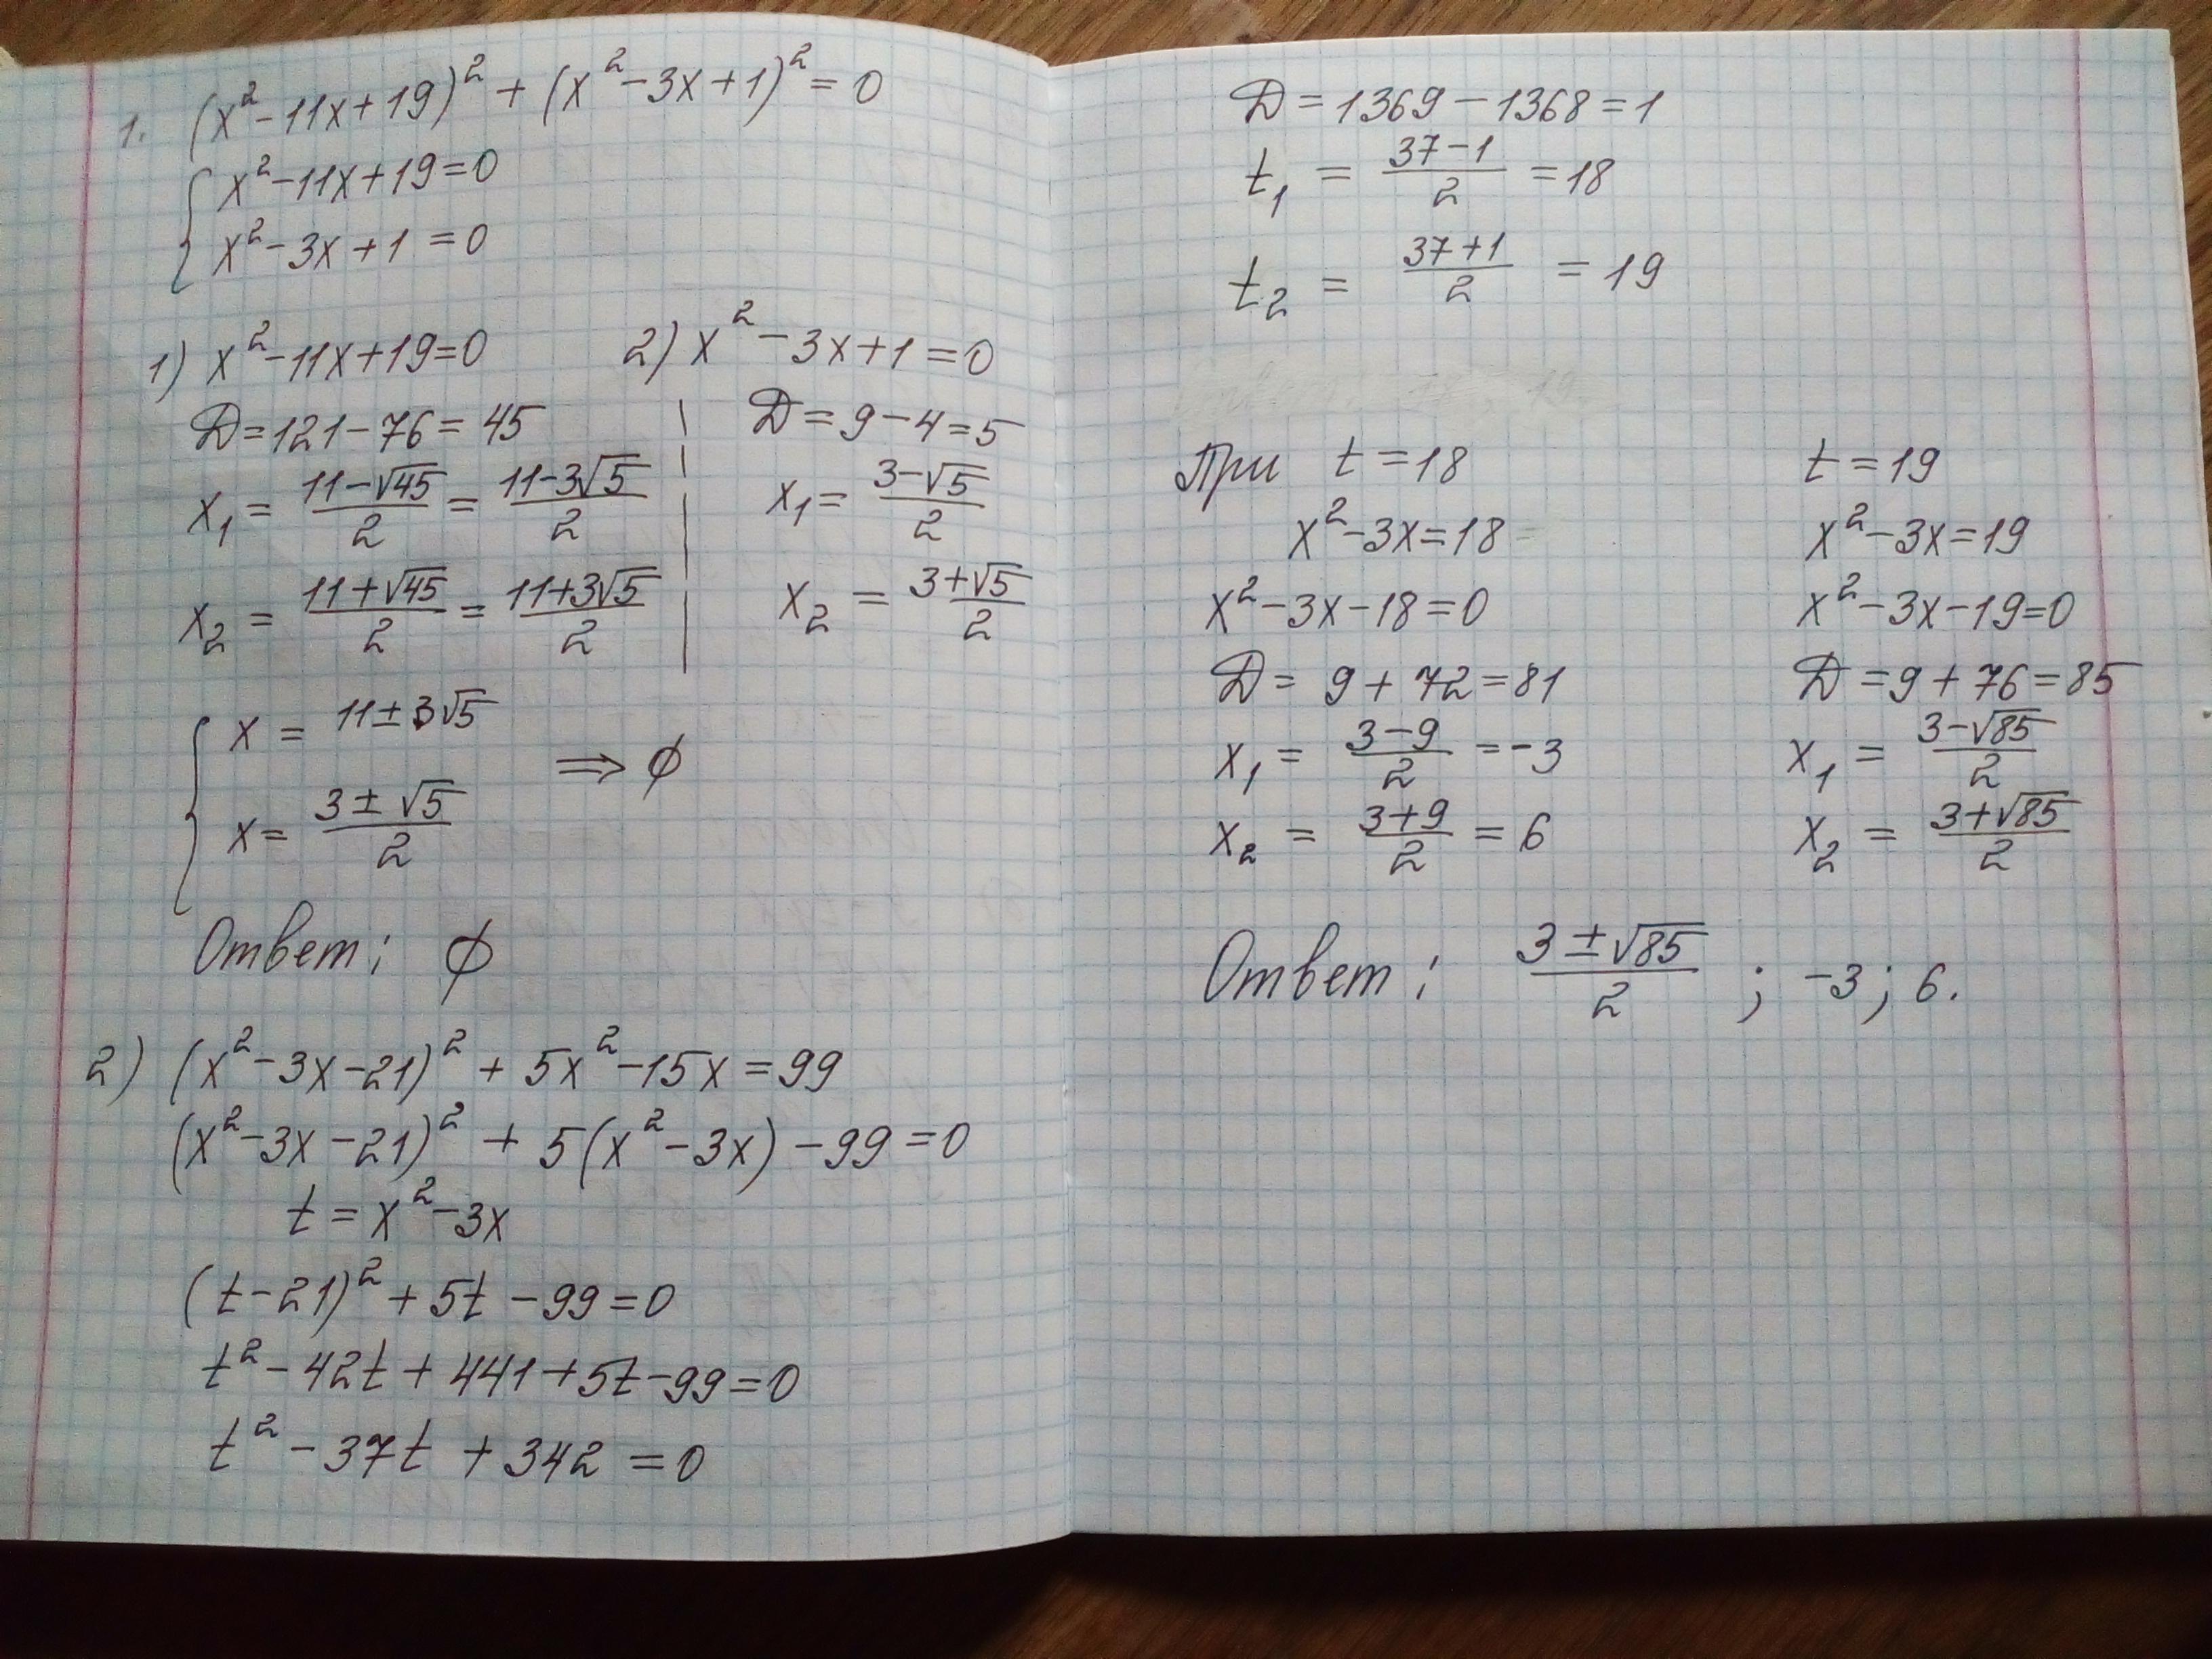 1. (x²-11x+19)² + (x²-3x+1)² = 0
{ x²-11x+19=0
x²-3x+1=0
1) x²-11x+19=0
D=121-76=45
x₁ = (11-√45)/2 = (11-3√5)/2
x₂ = (11+√45)/2 = (11+3√5)/2
2) x²-3x+1=0
D=9-4=5
x₁ = (3-√5)/2
x₂ = (3+√5)/2
{ x = 11±3√5
x = (3±√5)/2
⇒ ∅
Ответ: ∅
2) (x²-3x-21)² + 5x²-15x=99
(x²-3x-21)² + 5(x²-3x)-99=0
t = x²-3x
(t-21)²+5t-99=0
t²-42t+441+5t-99=0
t²-37t+342=0
D=1369-1368=1
t₁ = (37-1)/2 = 18
t₂ = (37+1)/2 = 19
При t=18
x²-3x=18
x²-3x-18=0
D= 9+72=81
x₁ = (3-9)/2 = -3
x₂ = (3+9)/2 = 6
t=19
x²-3x=19
x²-3x-19=0
D=9+76=85
x₁ = (3-√85)/2
x₂ = (3+√85)/2
Ответ: (3±√85)/2 ; -3; 6.